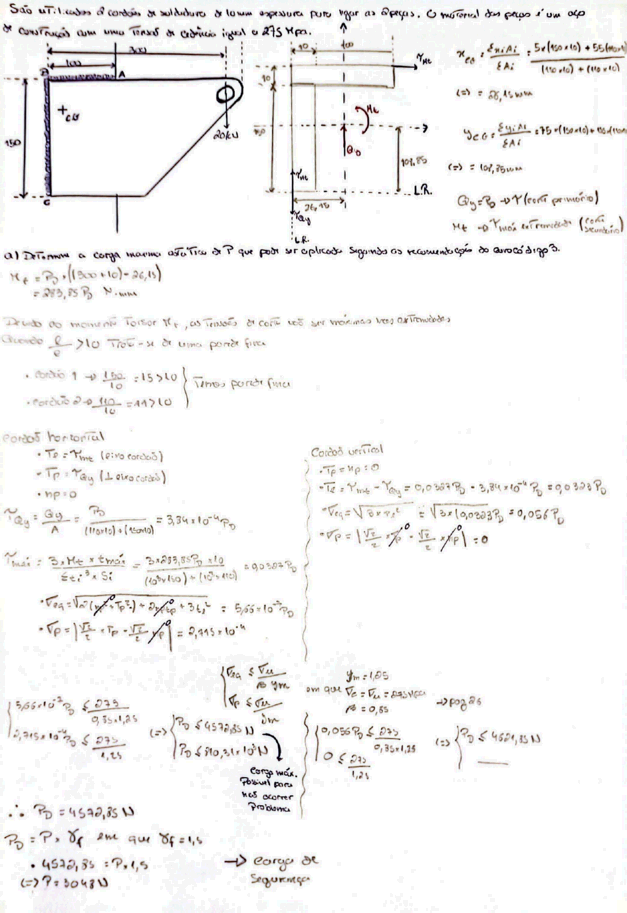 São utilizados 2 cordões de soldadura de 10mm espessura para ligar as 2 peças. O material das peças é um aço
de construção com uma Tensão de cedência igual a 275 Mpa.
300
100
B
A
+CG
20kN
150
C
10
100
10
τMt
Mt
O
101,85
τMt
26,15
τQy
L.R.
L.R.
xCG = ΣxiAi / ΣAi = 5×(150×10) + 55(110×10) / (150×10) + (110×10)
(=) = 26,15 mm
yCG = ΣyiAi / ΣAi = 75×(150×10) +
(=) = 101,85mm
Qy = PD → τ (corte primário)
Mt → τmáx extremidade (corte secundário)
a) Determine a carga máxima estática de P que pode ser aplicada segundo as recomendação do eurocódigo 3.
Mt = PD × ((300+10) - 26,15)
= 283,85 PD N.mm
Devido ao momento Torsor Mt, as Tensões de corte vão ser máximas nas extremidades
Quando l/e >10 Trata-se de uma parede fina
• cordão 1 → 150/10 = 15 >10
• cordão 2 → 110/10 = 11 >10
Temos parede fina
Cordão horizontal
• Te = τMt (eixo cordão)
• Tp = τQy (⊥ eixo cordão)
• np = 0
τQy = Qy/A = PD / (110×10)+(150×10) = 3,84×10⁻⁴ PD
τmáx = 3×Mt×tmáx / Σti³×Si = 3×283,85PD×10 / (10³×150)+(10³×110) = 0,0327PD
= 5,66×10⁻² PD
= 2,715×10⁻⁴
Cordão vertical
• Tp = np = 0
• Te = τMt - τQy = 0,0327PD - 3,84×10⁻⁴ PD = 0,0323PD
= √3×(0,0323PD)² = 0,056PD
= 0
σeq ≤ σu / β γm
σp ≤ σu / γm
em que γm = 1,25
β = 0,85
→ pag 25
5,66×10⁻² PD ≤ 275 / 0,85×1,25
2,715×10⁻⁴ PD ≤ 275 / 1,25
(=) PD ≤ 4572,85 N
PD ≤ 810,31×10³ N
carga máx.
Possivel para
não ocorrer
Problema
0,056PD ≤ 275 / 0,85×1,25
0 ≤ 275 / 1,25
(=) PD ≤ 4621,85 N
∴ PD = 4572,85 N
PD = P × γf em que γf = 1,5
• 4572,85 = P × 1,5
(=) P = 3048 N
→ Carga de
Segurança